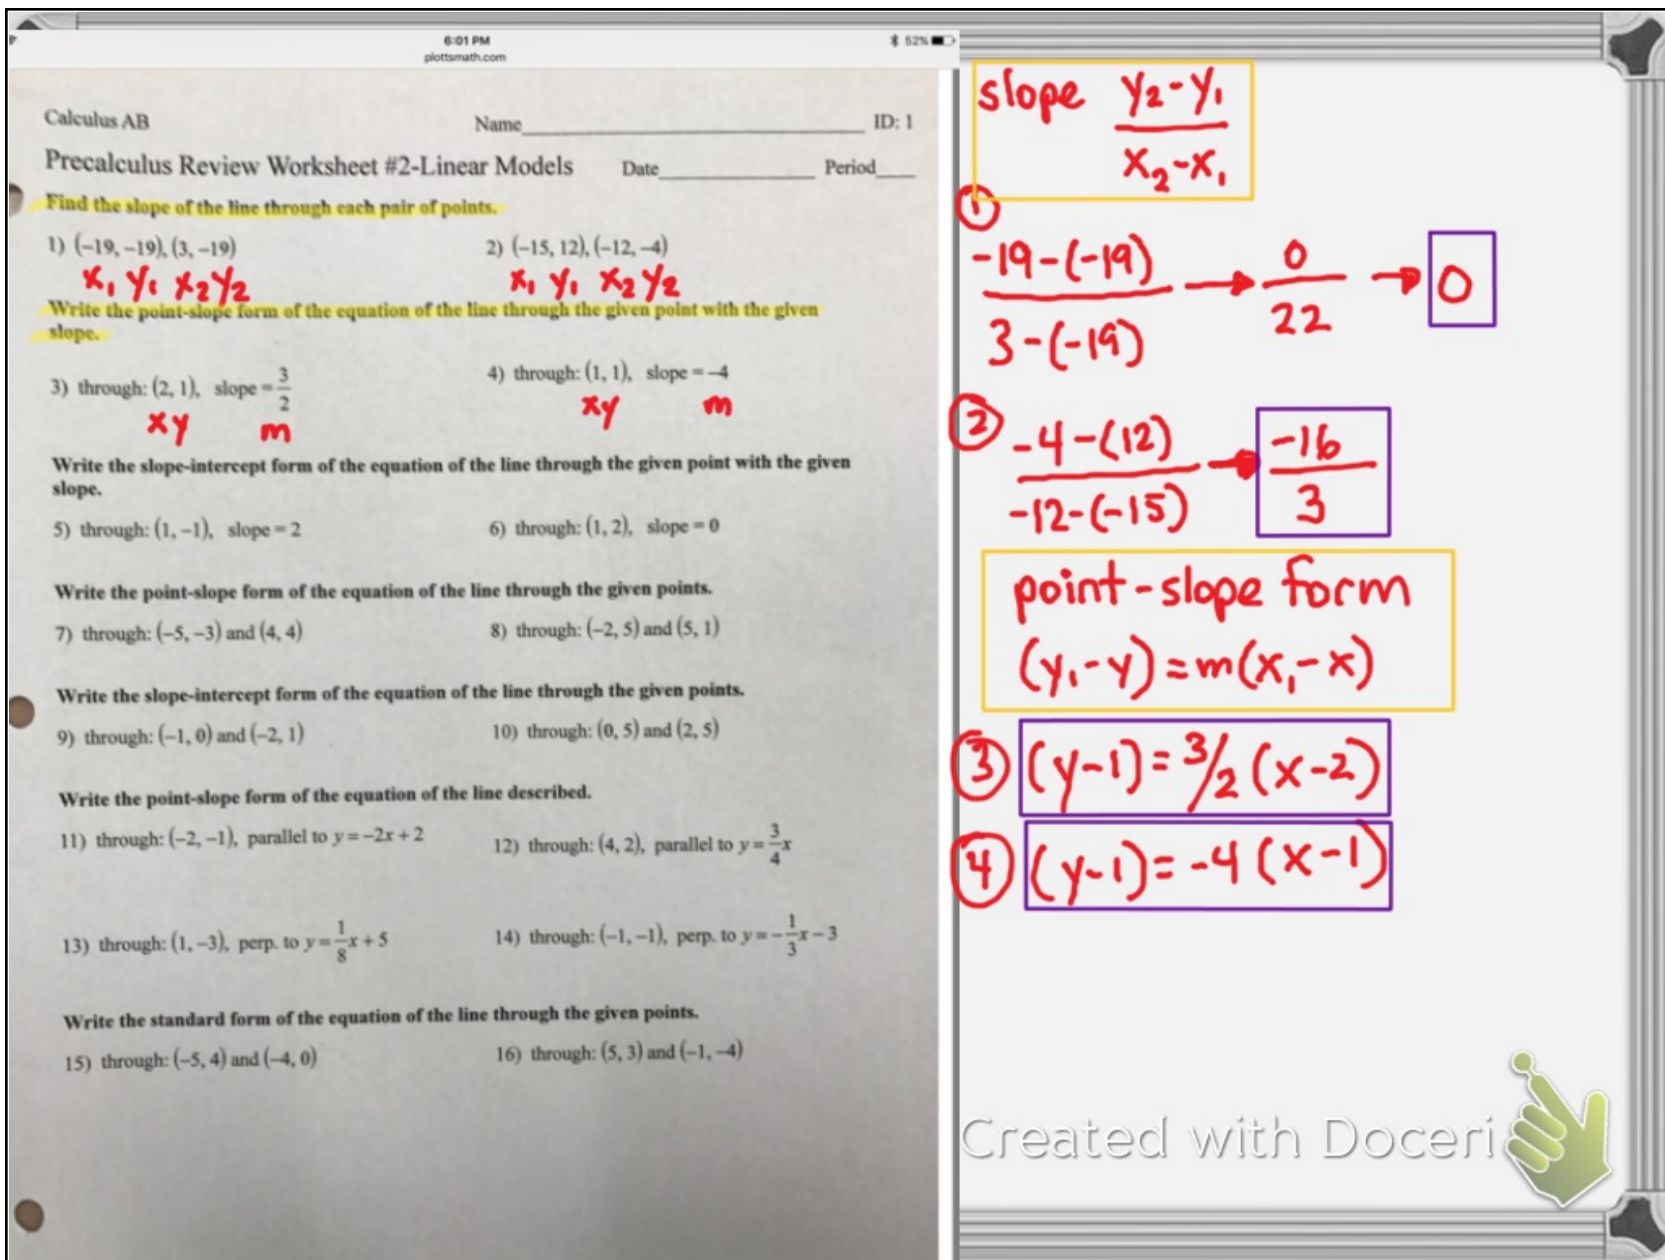 6:01 PM
52%
plottsmath.com
Calculus AB Name ID: 1
Precalculus Review Worksheet #2-Linear Models Date Period
Find the slope of the line through each pair of points.
1) (−19, −19), (3, −19) 2) (−15, 12), (−12, −4)
x₁ y₁ x₂ y₂ x₁ y₁ x₂ y₂
Write the point-slope form of the equation of the line through the given point with the given
slope.
3) through: (2, 1), slope = 3/2 4) through: (1, 1), slope = −4
xy m xy m
Write the slope-intercept form of the equation of the line through the given point with the given
slope.
5) through: (1, −1), slope = 2 6) through: (1, 2), slope = 0
Write the point-slope form of the equation of the line through the given points.
7) through: (−5, −3) and (4, 4) 8) through: (−2, 5) and (5, 1)
Write the slope-intercept form of the equation of the line through the given points.
9) through: (−1, 0) and (−2, 1) 10) through: (0, 5) and (2, 5)
Write the point-slope form of the equation of the line described.
11) through: (−2, −1), parallel to y = −2x + 2 12) through: (4, 2), parallel to y = 3/4 x
13) through: (1, −3), perp. to y = 1/8 x + 5 14) through: (−1, −1), perp. to y = −1/3 x − 3
Write the standard form of the equation of the line through the given points.
15) through: (−5, 4) and (−4, 0) 16) through: (5, 3) and (−1, −4)
slope y₂-y₁
x₂-x₁
1
-19-(-19) → 0 → 0
3-(-19) 22
2
-4-(12) → -16
-12-(-15) 3
point-slope form
(y₁-y)=m(x₁-x)
3 (y-1)=3/2(x-2)
4 (y-1)=-4(x-1)
Created with Doceri